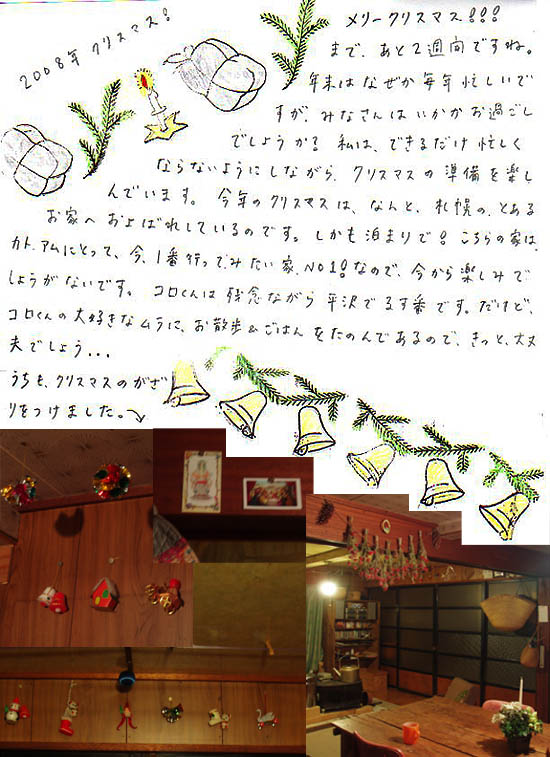 2008年 クリスマス!
メリークリスマス!!!
まで、あと2週間ですね。
年末はなぜか毎年忙しいで
すが、みなさんはいかがお過ごし
でしょうか? 私は、できるだけ忙しく
ならないようにしながら、クリスマスの準備を楽し
んでいます。今年のクリスマスは、なんと、札幌の、とある
お家へおよばれしているのです。しかも泊まりで! こちらの家は、
カト.アムにとって、今、1番行ってみたい家、NO1!なので、今から楽しみで
しょうがないです。コロくんは残念ながら平沢でるす番です。だけど、
コロくんの大好きなムラに、お散歩&ごはんをたのんであるので、きっと、大丈
夫でしょう...
うちも、クリスマスのかざ
りをつけました。